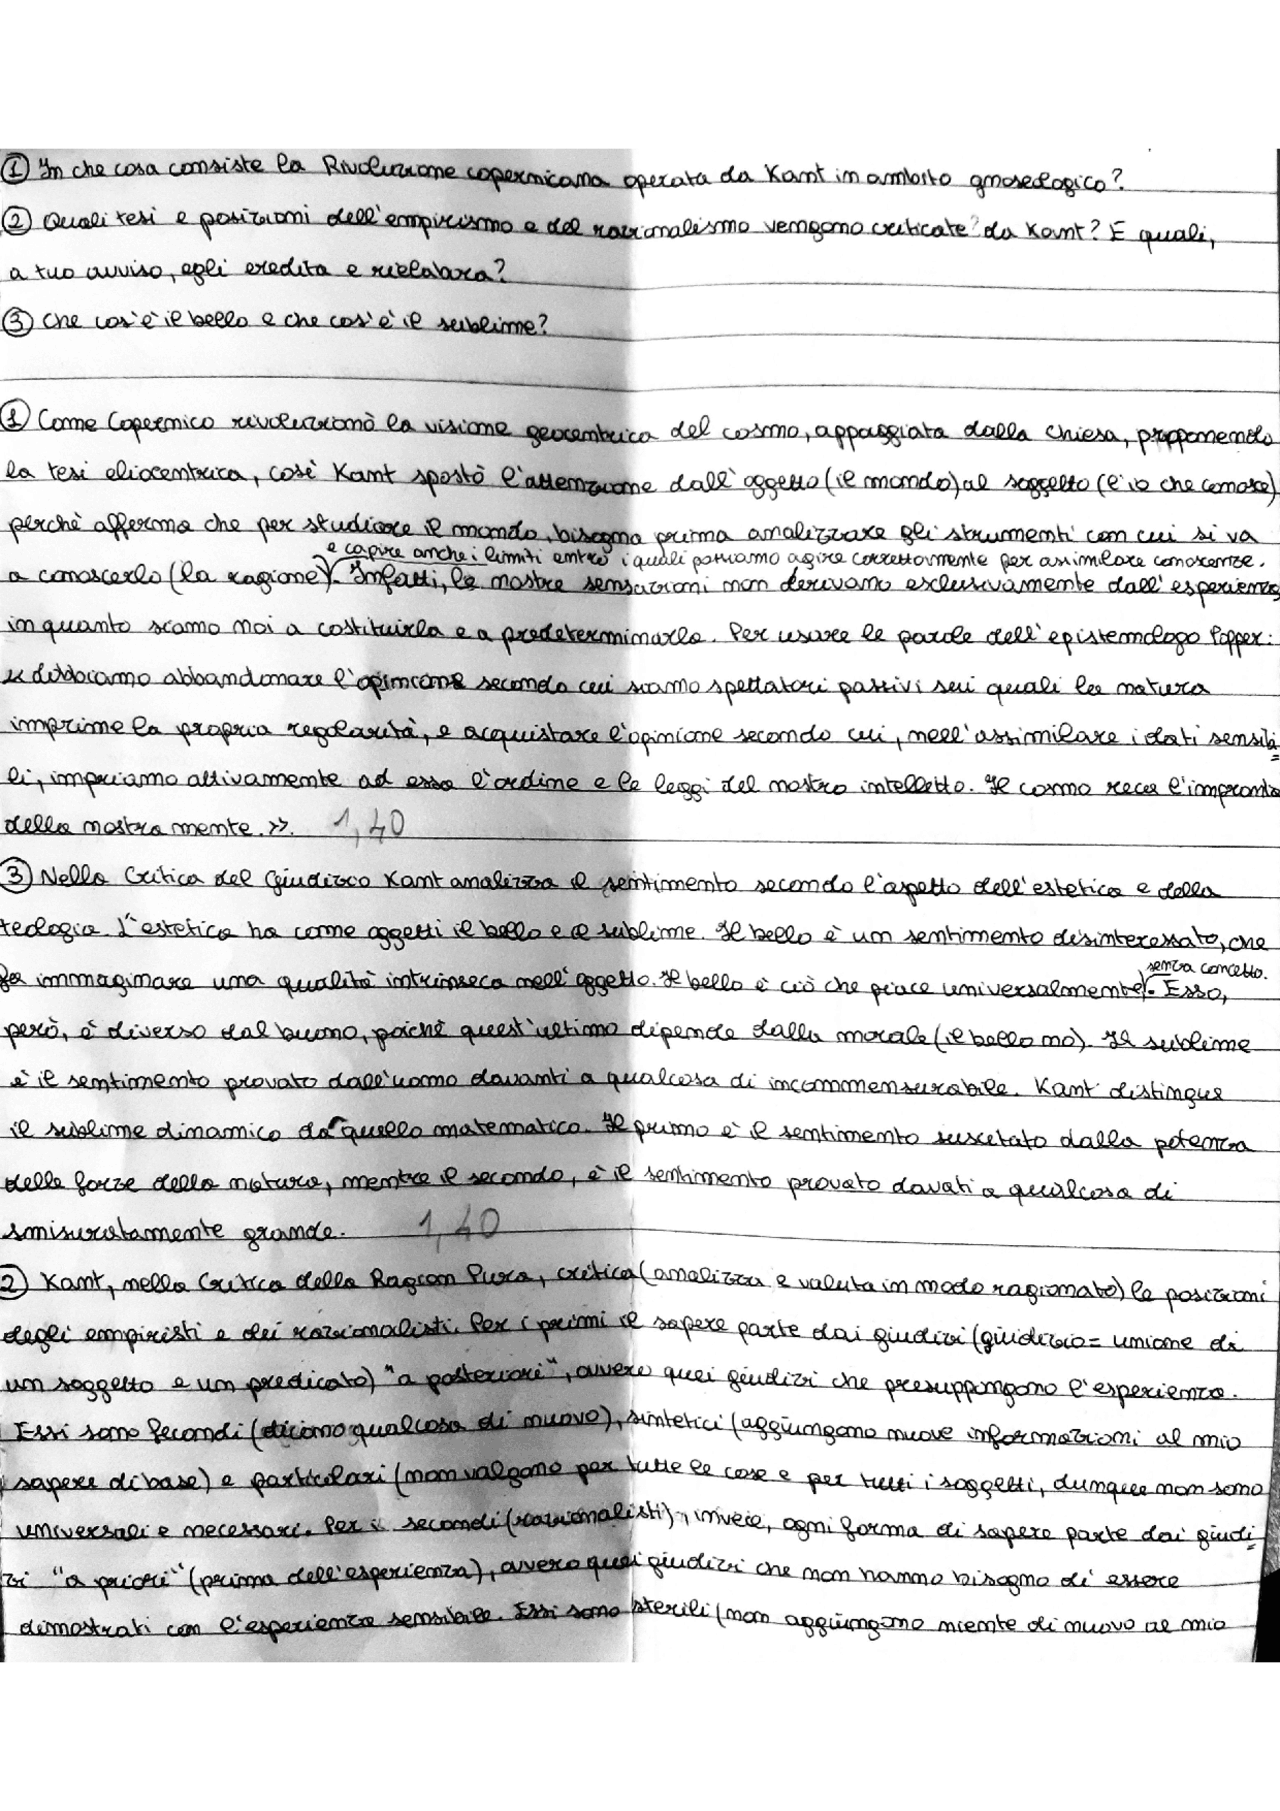 ① In che cosa consiste la Rivoluzione copernicana operata da Kant in ambito gnoseologico?
② Quali tesi e posizioni dell'empirismo e del razionalismo vengono criticate? da Kant? E quali,
a tuo avviso, egli eredita e rielabora?
③ Che cos'è il bello e che cos'è il sublime?
① Come Copernico rivoluzionò la visione geocentrica del cosmo, appoggiata dalla chiesa, proponendo
la tesi eliocentrica, così Kant spostò l'attenzione dall'oggetto (il mondo) al soggetto (l'io che conosce)
perchè afferma che per studiare il mondo, bisogna prima analizzare gli strumenti con cui si va
e capire anche i limiti entro i quali possiamo agire correttamente per assimilare conoscenze.
a conoscerlo (la ragione). Infatti, le nostre sensazioni non derivano esclusivamente dall'esperienza
in quanto siamo noi a costituirla e a predeterminarla. Per usare le parole dell'epistemologo Popper:
« dobbiamo abbandonare l'opinione secondo cui siamo spettatori passivi sui quali la natura
imprime la propria regolarità, e acquistare l'opinione secondo cui, nell'assimilare i dati sensibi=
li, impriamo attivamente ad essa l'ordine e le leggi del nostro intelletto. Il cosmo reca l'impronta
della nostra mente.». 1,40
③ Nella Critica del Giudizio Kant analizza il sentimento secondo l'aspetto dell'estetica e della
teologia. L'estetica ha come oggetti il bello e il sublime. Il bello è un sentimento disinteressato, che
fa immaginare una qualità intrinseca nell'oggetto. Il bello è ciò che piace universalmente. Esso,
senza concetto.
però, è diverso dal buono, poichè quest'ultimo dipende dalla morale (il bello no). Il sublime
è il sentimento provato dall'uomo davanti a qualcosa di incommensurabile. Kant distingue
il sublime dinamico da quello matematico. Il primo è il sentimento suscitato dalla potenza
delle forze della natura, mentre il secondo, è il sentimento provato davati a qualcosa di
smisuratamente grande. 1,40
② Kant, nella Critica della Ragion Pura, critica (analizza e valuta in modo ragionato) le posizioni
degli empiristi e dei razionalisti. Per i primi il sapere parte dai giudizi (giudizio = unione di
un soggetto e un predicato) "a posteriori", ovvero quei giudizi che presuppongono l'esperienza.
Essi sono fecondi (dicono qualcosa di nuovo), sintetici (aggiungono nuove informazioni al mio
sapere di base) e particolari (non valgono per tutte le cose e per tutti i soggetti, dunque non sono
universali e necessari. Per i secondi (razionalisti), invece, ogni forma di sapere parte dai giudi=
zi "a priori" (prima dell'esperienza), ovvero quei giudizi che non hanno bisogno di essere
dimostrati con l'esperienza sensibile. Essi sono sterili (non aggiungono niente di nuovo al mio